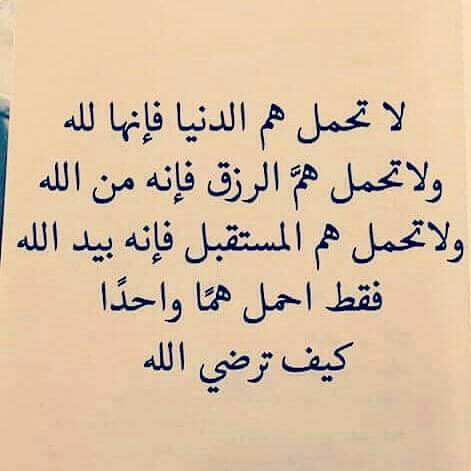 لا تحمل هم الدنيا فإنها لله
ولا تحمل همَّ الرزق فإنه من الله
ولا تحمل هم المستقبل فإنه بيد الله
فقط احمل همًا واحدًا
كيف ترضي الله